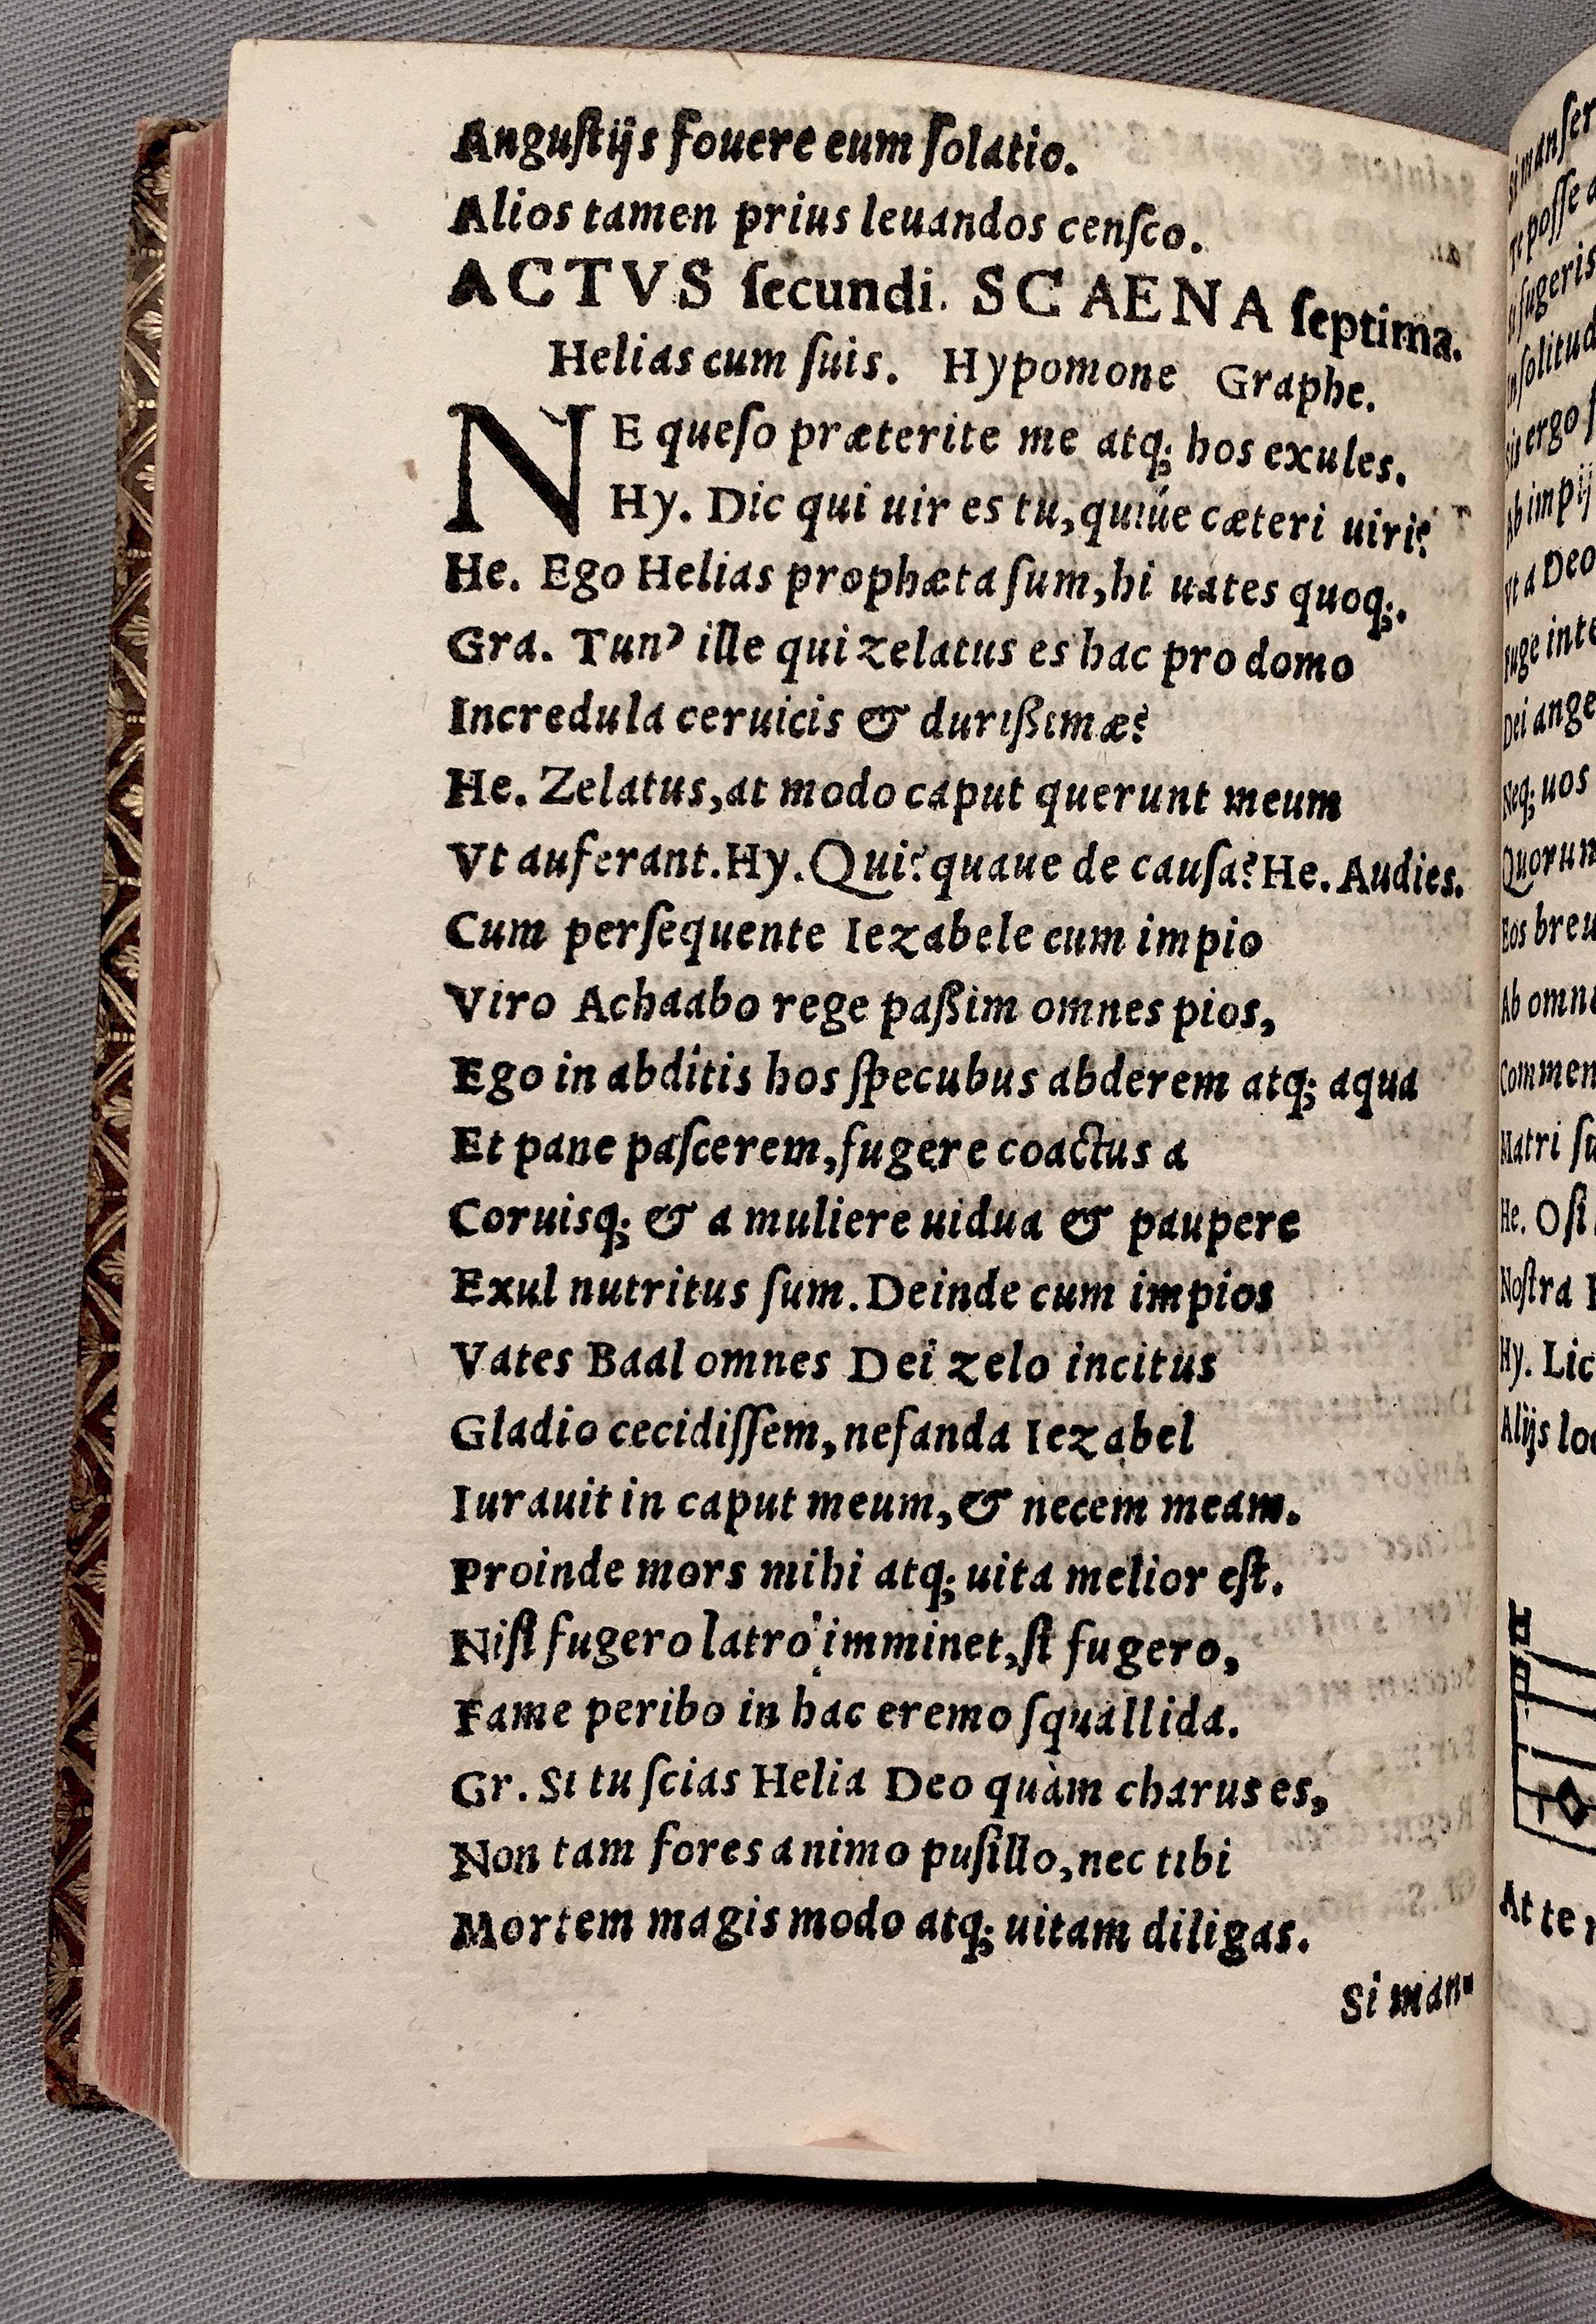 Anguſtijs fouere eum ſolatio.
Alios tamen prius leuandos cenſeo.
ACTVS ſecundi. SCAENA ſeptima.
Helias cum ſuis. Hypomone Graphe.
NE queſo præterite me atq; hos exules.
Hy. Dic qui uir es tu, quiúe cæteri uiri?
He. Ego Helias prophæta ſum, hi uates quoq;.
Gra. Tun' ille qui zelatus es hac pro domo
Incredula ceruicis & durißimæ?
He. Zelatus, at modo caput querunt meum
Vt auferant. Hy. Qui? quaue de cauſa? He. Audies.
Cum perſequente Iezabele cum impio
Viro Achaabo rege paßim omnes pios,
Ego in abditis hos ſpecubus abderem atq; aqua
Et pane paſcerem, fugere coactus a
Coruisq; & a muliere uidua & paupere
Exul nutritus ſum. Deinde cum impios
Vates Baal omnes Dei zelo incitus
Gladio cecidiſſem, nefanda Iezabel
Iurauit in caput meum, & necem meam.
Proinde mors mihi atq; uita melior eſt.
Niſi fugero latro imminet, ſi fugero,
Fame peribo in hac eremo ſquallida.
Gr. Si tu ſcias Helia Deo quàm charus es,
Non tam fores animo puſillo, nec tibi
Mortem magis modo atq; uitam diligas.
Si man-
Te poſſe
ſolitud
ergo
Ab impij
Vt a Deo
Fuge inte
Dei ange
Neq; uos
Quorun
Eos breu
Ab omn
Commen
Matri ſu
He. O ſi
Noſtra
Hy. Lic
Alijs lo
At te